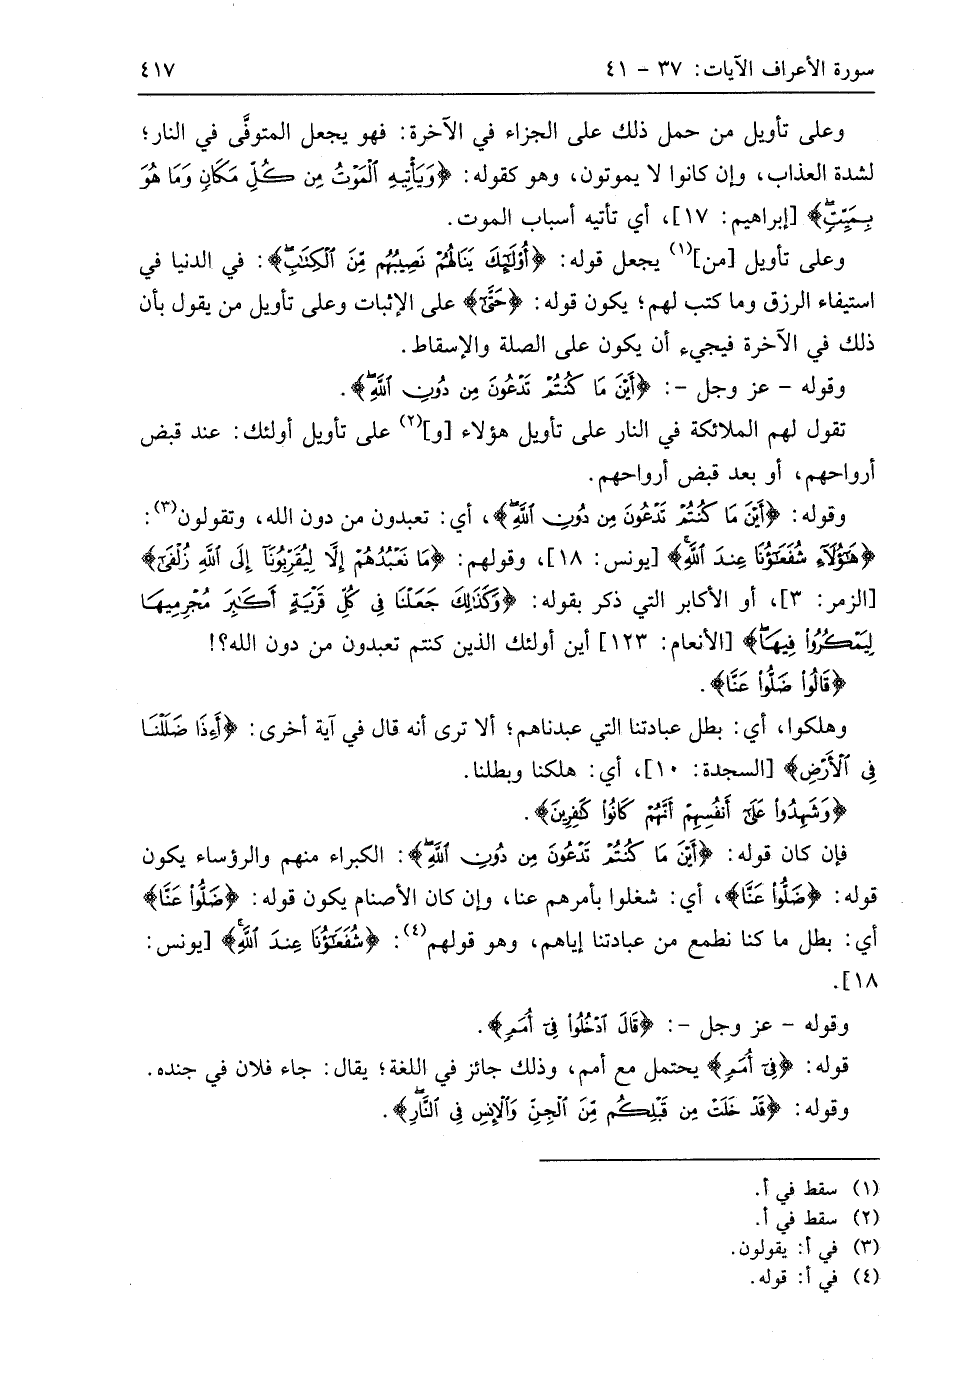 سورة الأعراف الآيات: ٣٧ - ٤١ ٤١٧
وعلى تأويل من حمل ذلك على الجزاء في الآخرة: فهو يجعل المتوفَّى في النار؛
لشدة العذاب، وإن كانوا لا يموتون، وهو كقوله: ﴿وَيَأْتِيهِ ٱلْمَوْتُ مِن كُلِّ مَكَانٍ وَمَا هُوَ
بِمَيِّتٍۖ﴾ [إبراهيم: ١٧]، أي تأتيه أسباب الموت.
وعلى تأويل [من](١) يجعل قوله: ﴿أُوْلَٰٓئِكَ يَنَالُهُمْ نَصِيبُهُم مِّنَ ٱلْكِتَٰبِۖ﴾: في الدنيا في
استيفاء الرزق وما كتب لهم؛ يكون قوله: ﴿حَتَّىٰٓ﴾ على الإثبات وعلى تأويل من يقول بأن
ذلك في الآخرة فيجيء أن يكون على الصلة والإسقاط.
وقوله - عز وجل -: ﴿أَيْنَ مَا كُنتُمْ تَدْعُونَ مِن دُونِ ٱللَّهِۖ﴾.
تقول لهم الملائكة في النار على تأويل هؤلاء [و](٢) على تأويل أولئك: عند قبض
أرواحهم، أو بعد قبض أرواحهم.
وقوله: ﴿أَيْنَ مَا كُنتُمْ تَدْعُونَ مِن دُونِ ٱللَّهِۖ﴾، أي: تعبدون من دون الله، وتقولون(٣):
﴿هَٰٓؤُلَآءِ شُفَعَٰٓؤُنَا عِندَ ٱللَّهِۚ﴾ [يونس: ١٨]، وقولهم: ﴿مَا نَعْبُدُهُمْ إِلَّا لِيُقَرِّبُونَآ إِلَى ٱللَّهِ زُلْفَىٰٓ﴾
[الزمر: ٣]، أو الأكابر التي ذكر بقوله: ﴿وَكَذَٰلِكَ جَعَلْنَا فِى كُلِّ قَرْيَةٍ أَكَٰبِرَ مُجْرِمِيهَا
لِيَمْكُرُوا۟ فِيهَاۖ﴾ [الأنعام: ١٢٣] أين أولئك الذين كنتم تعبدون من دون الله؟!
﴿قَالُوا۟ ضَلُّوا۟ عَنَّا﴾.
وهلكوا، أي: بطل عبادتنا التي عبدناهم؛ ألا ترى أنه قال في آية أخرى: ﴿أَءِذَا ضَلَلْنَا
فِى ٱلْأَرْضِ﴾ [السجدة: ١٠]، أي: هلكنا وبطلنا.
﴿وَشَهِدُوا۟ عَلَىٰٓ أَنفُسِهِمْ أَنَّهُمْ كَانُوا۟ كَٰفِرِينَ﴾.
فإن كان قوله: ﴿أَيْنَ مَا كُنتُمْ تَدْعُونَ مِن دُونِ ٱللَّهِۖ﴾: الكبراء منهم والرؤساء يكون
قوله: ﴿ضَلُّوا۟ عَنَّا﴾، أي: شغلوا بأمرهم عنا، وإن كان الأصنام يكون قوله: ﴿ضَلُّوا۟ عَنَّا﴾
أي: بطل ما كنا نطمع من عبادتنا إياهم، وهو قولهم(٤): ﴿شُفَعَٰٓؤُنَا عِندَ ٱللَّهِۚ﴾ [يونس:
١٨].
وقوله - عز وجل -: ﴿قَالَ ٱدْخُلُوا۟ فِىٓ أُمَمٍ﴾.
قوله: ﴿فِىٓ أُمَمٍ﴾ يحتمل مع أمم، وذلك جائز في اللغة؛ يقال: جاء فلان في جنده.
وقوله: ﴿قَدْ خَلَتْ مِن قَبْلِكُم مِّنَ ٱلْجِنِّ وَٱلْإِنسِ فِى ٱلنَّارِۖ﴾.
(١) سقط في أ.
(٢) سقط في أ.
(٣) في أ: يقولون.
(٤) في أ: قوله.